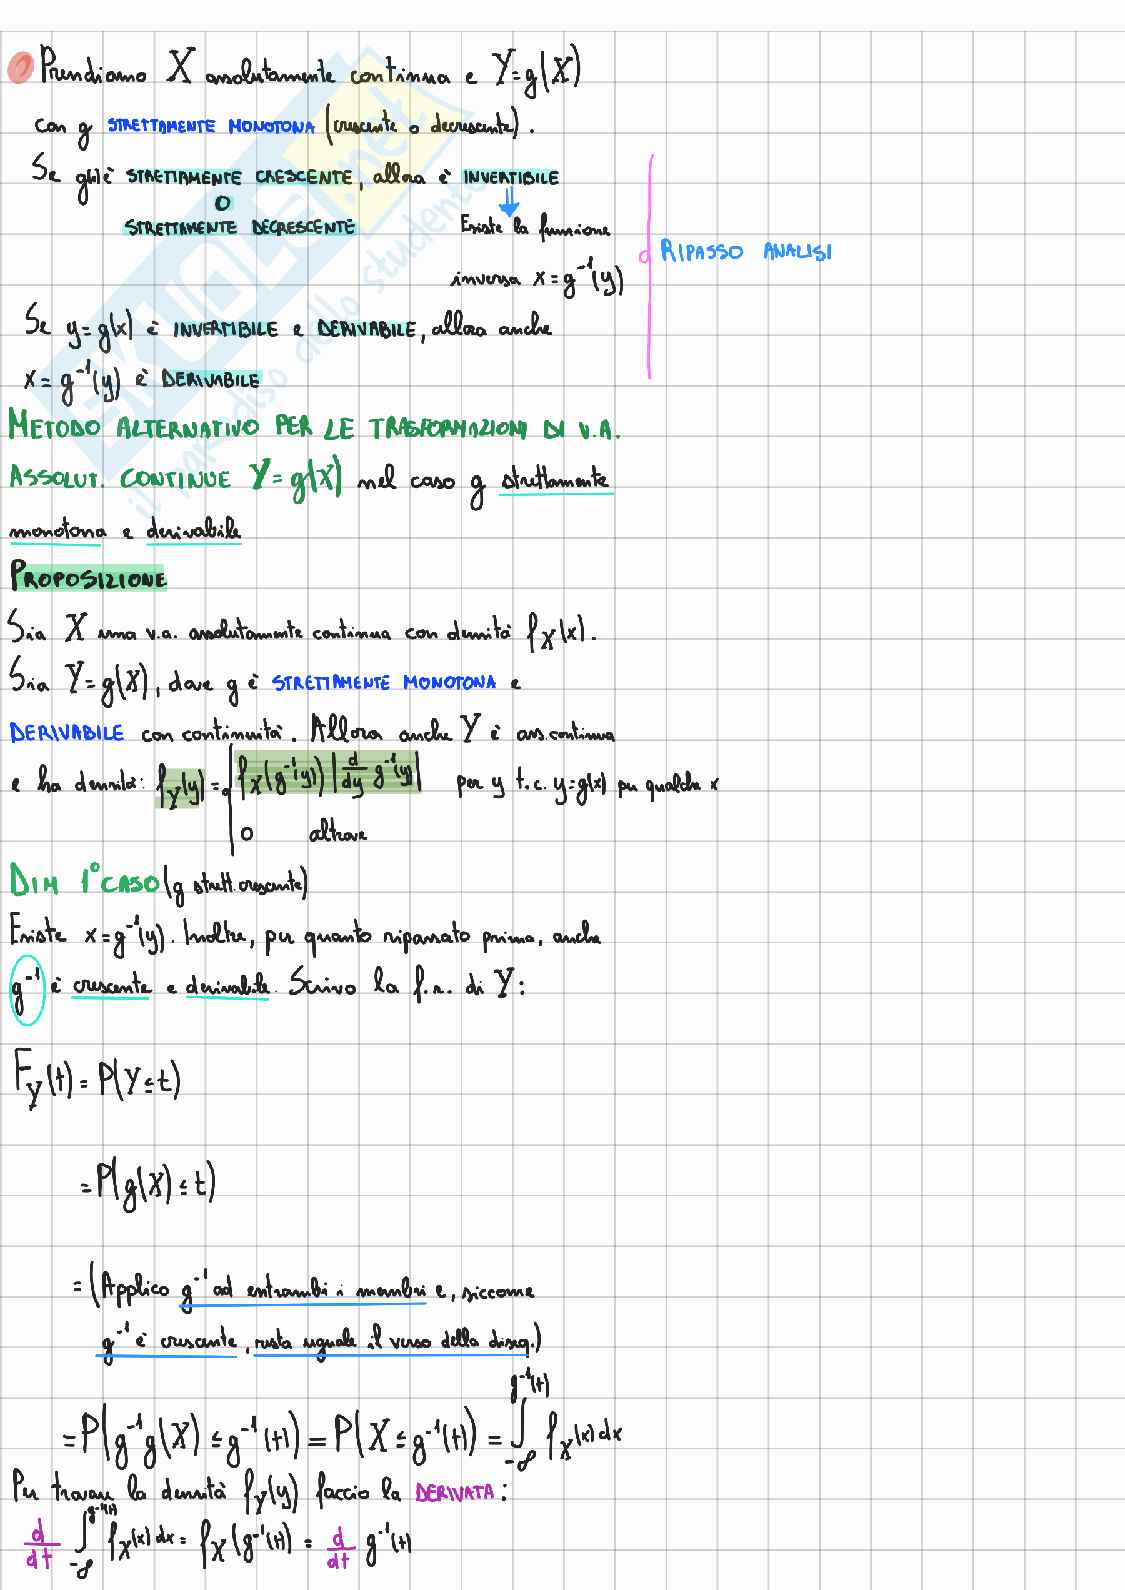 Prendiamo X assolutamente continua e Y=g(X)
con g STRETTAMENTE MONOTONA (crescente o decrescente).
Se g(x) è STRETTAMENTE CRESCENTE, allora è INVERTIBILE
O
STRETTAMENTE DECRESCENTE Esiste la funzione
RIPASSO ANALISI
inversa x=g⁻¹(y)
Se y=g(x) è INVERTIBILE e DERIVABILE, allora anche
x=g⁻¹(y) è DERIVABILE
METODO ALTERNATIVO PER LE TRASFORMAZIONI DI V.A.
ASSOLUT. CONTINUE Y=g(X) nel caso g strettamente
monotona e derivabile
PROPOSIZIONE
Sia X una v.a. assolutamente continua con densità f_X(x).
Sia Y=g(X), dove g è STRETTAMENTE MONOTONA e
DERIVABILE con continuità. Allora anche Y è ass. continua
e ha densità: f_Y(y) = { f_X(g⁻¹(y)) |d/dy g⁻¹(y)| per y t.c. y=g(x) per qualche x
0 altrove
DIM 1° CASO (g strett. crescente)
Esiste x=g⁻¹(y). Inoltre, per quanto ripassato prima, anche
g⁻¹ è crescente e derivabile. Scrivo la f.r. di Y:
F_Y(t) = P(Y≤t)
= P(g(X)≤t)
= (Applico g⁻¹ ad entrambi i membri e, siccome
g⁻¹ è crescente, resta uguale il verso della diseq.)
= P(g⁻¹g(X) ≤ g⁻¹(t)) = P(X ≤ g⁻¹(t)) = ∫_{-∞}^{g⁻¹(t)} f_X(x) dx
Per trovare la densità f_Y(y) faccio la DERIVATA:
d/dt ∫_{-∞}^{g⁻¹(t)} f_X(x) dx = f_X(g⁻¹(t)) = d/dt g⁻¹(t)
SKUOLA.net
il paradiso dello studente